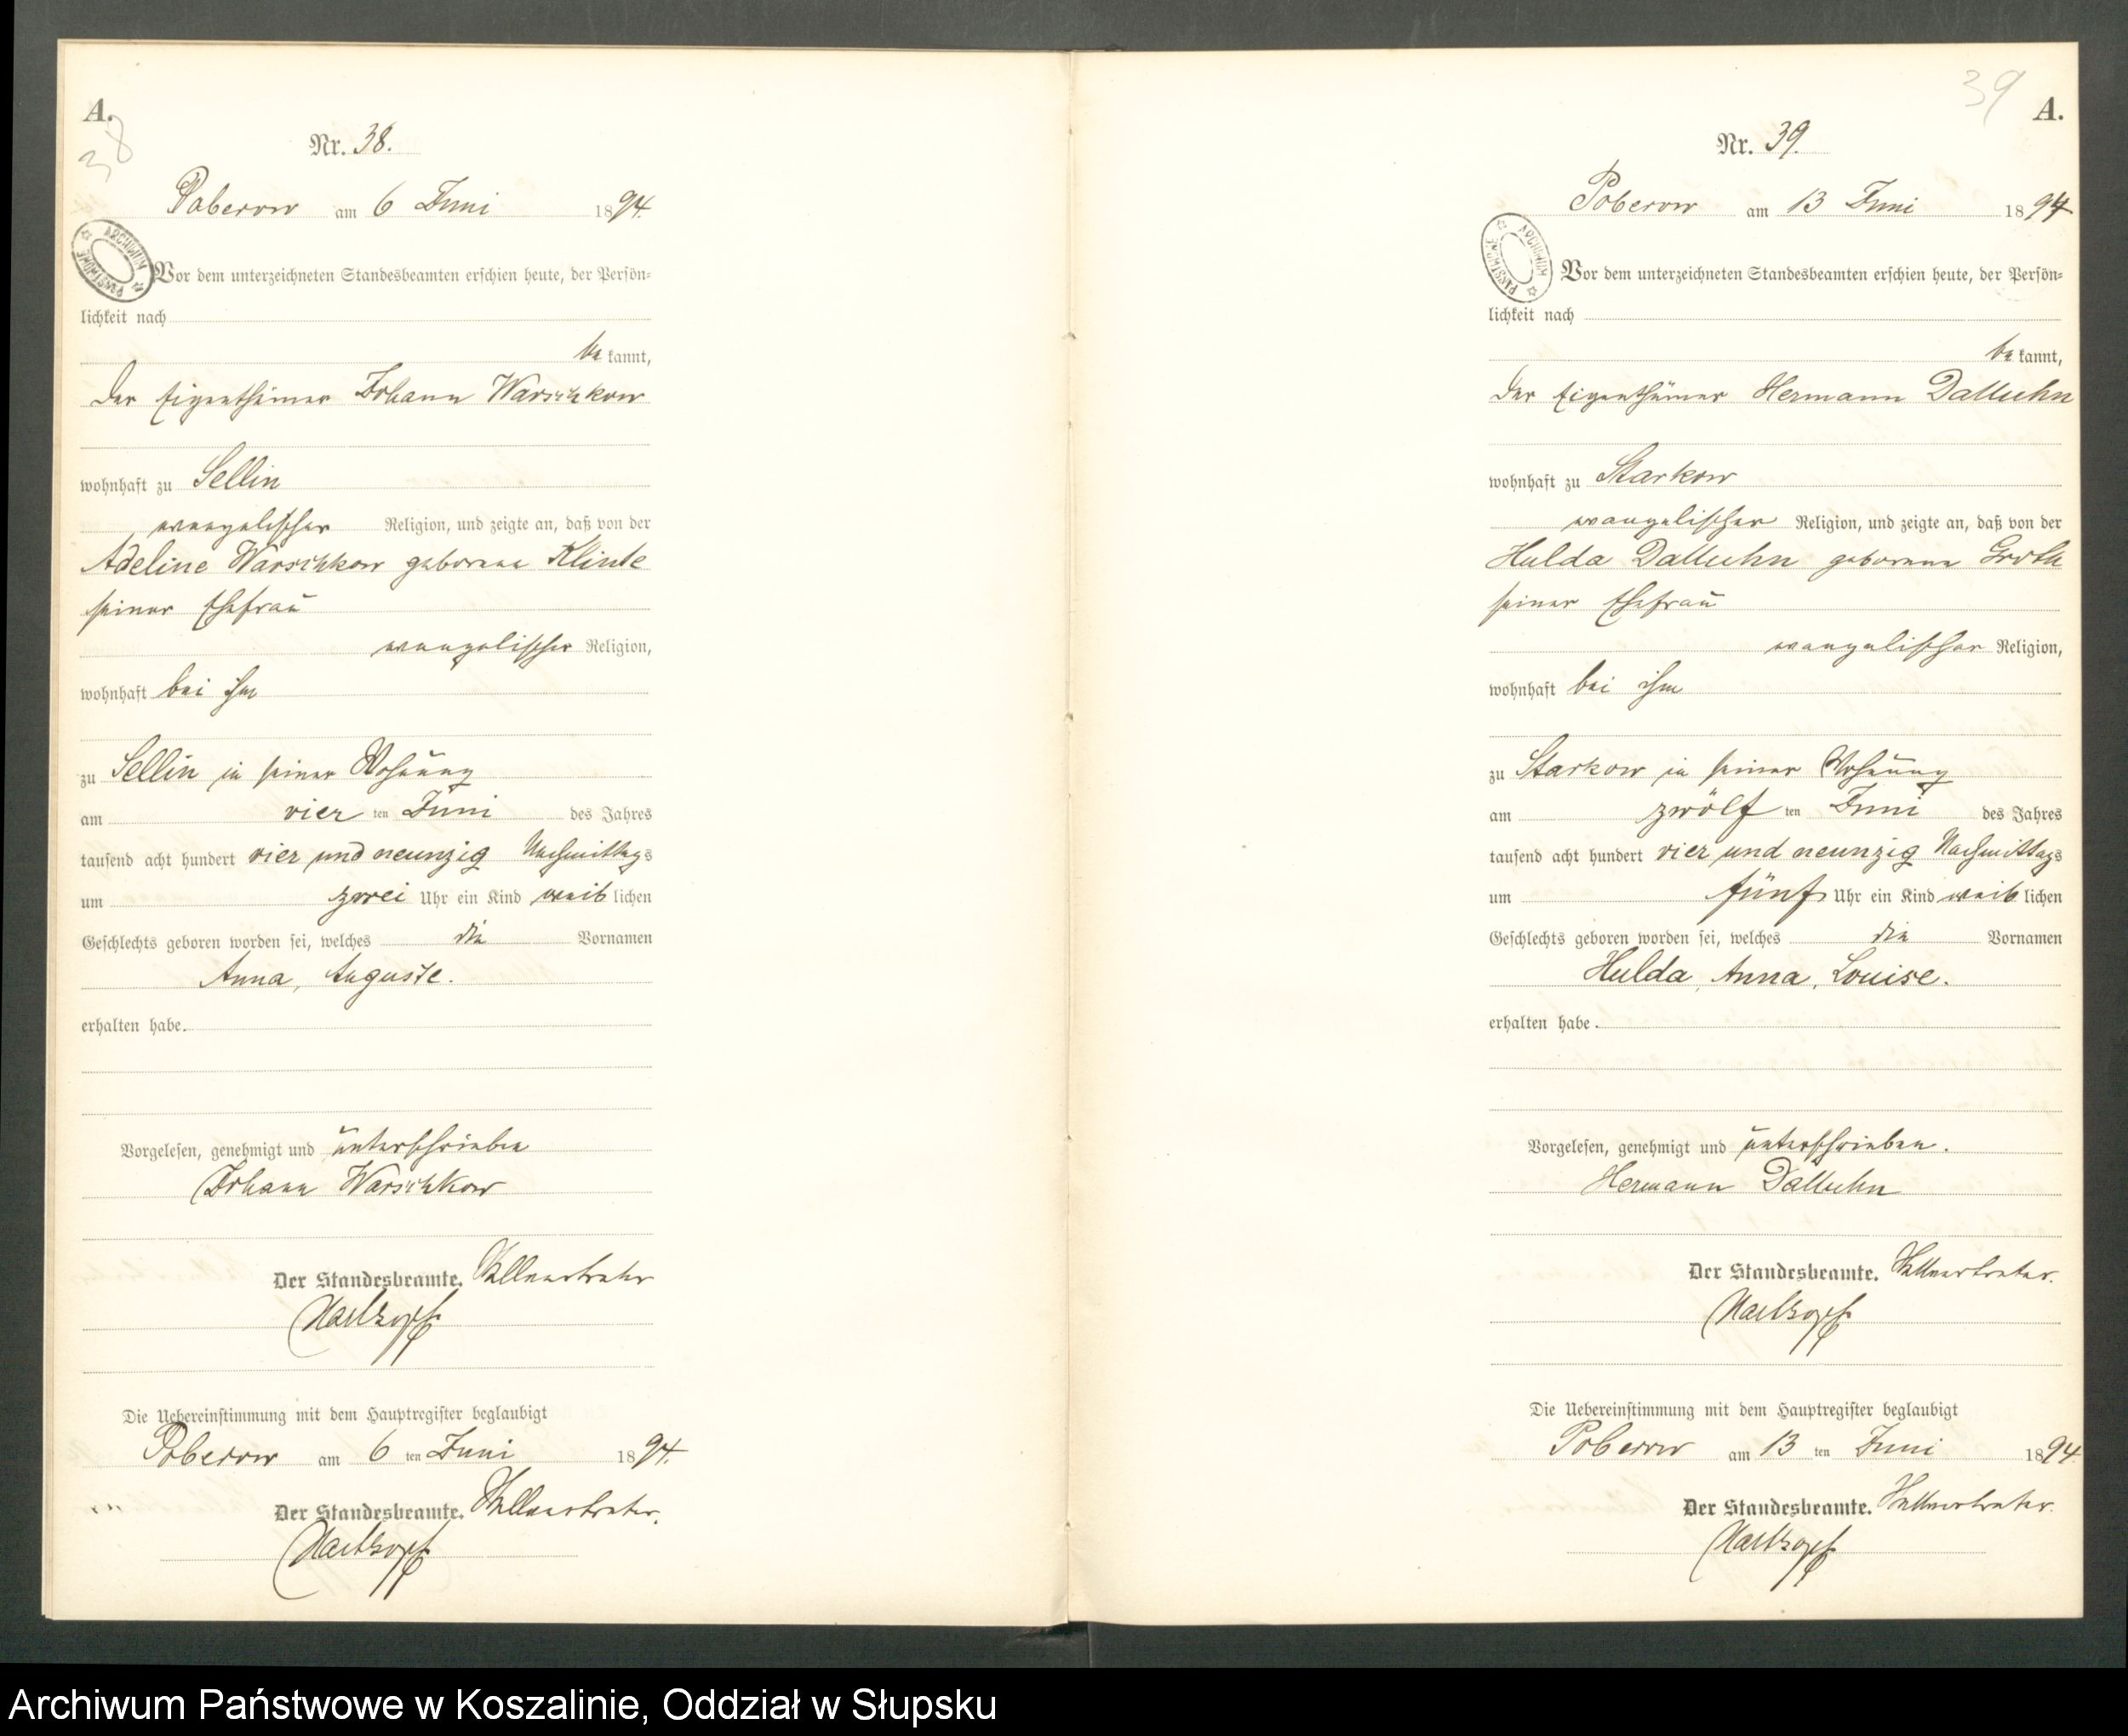 A.
38
Nr. 38.
Poberow am 6 Juni 1894.
ARCHIWUM PAŃSTWOWE
Vor dem unterzeichneten Standesbeamten erschien heute, der Persön-
lichkeit nach
bekannt,
der Eigenthümer Johann Warschkow
wohnhaft zu Sellin
evangelischer Religion, und zeigte an, daß von der
Adeline Warschkow geborene Klinte
seiner Ehefrau
evangelischer Religion,
wohnhaft bei ihm
zu Sellin in seiner Wohnung
am vier ten Juni des Jahres
tausend acht hundert vier und neunzig Nachmittags
um zwei Uhr ein Kind weiblichen
Geschlechts geboren worden sei, welches die Vornamen
Anna, Auguste.
erhalten habe.
Vorgelesen, genehmigt und unterschrieben
Johann Warschkow
Der Standesbeamte. Stellvertreter
Die Uebereinstimmung mit dem Hauptregister beglaubigt
Poberow am 6 ten Juni 1894.
Der Standesbeamte. Stellvertreter.
39
A.
Nr. 39.
Poberow am 13 Juni 1894
ARCHIWUM PAŃSTWOWE
Vor dem unterzeichneten Standesbeamten erschien heute, der Persön-
lichkeit nach
bekannt,
der Eigenthümer Hermann Dalluhn
wohnhaft zu Starkow
evangelischer Religion, und zeigte an, daß von der
Hulda Dalluhn geborene Groth
seiner Ehefrau
evangelischer Religion,
wohnhaft bei ihm
zu Starkow in seiner Wohnung
am zwölf ten Juni des Jahres
tausend acht hundert vier und neunzig Nachmittags
um fünf Uhr ein Kind weiblichen
Geschlechts geboren worden sei, welches die Vornamen
Hulda, Anna, Louise.
erhalten habe.
Vorgelesen, genehmigt und unterschrieben.
Hermann Dalluhn
Der Standesbeamte. Stellvertreter.
Die Uebereinstimmung mit dem Hauptregister beglaubigt
Poberow am 13 ten Juni 1894.
Der Standesbeamte. Stellvertreter.
Archiwum Państwowe w Koszalinie, Oddział w Słupsku